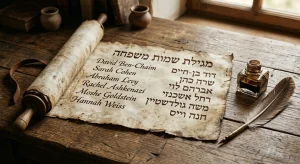 מגילת שמות משפחה
David Ben-Chaim
Sarah Cohen
Abraham Levy
Rachel Ashkenazi
Moshe Goldstein
Hannah Weiss
דוד בן-חיים
שרה כהן
אברהם לוי
רחל אשכנזי
משה גולדשטיין
חנה וייס